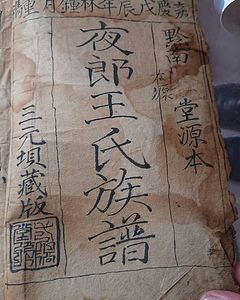 嘉慶戊辰年林鍾月重
黔南
堂源本
夜郎王氏族譜
三元垻藏版